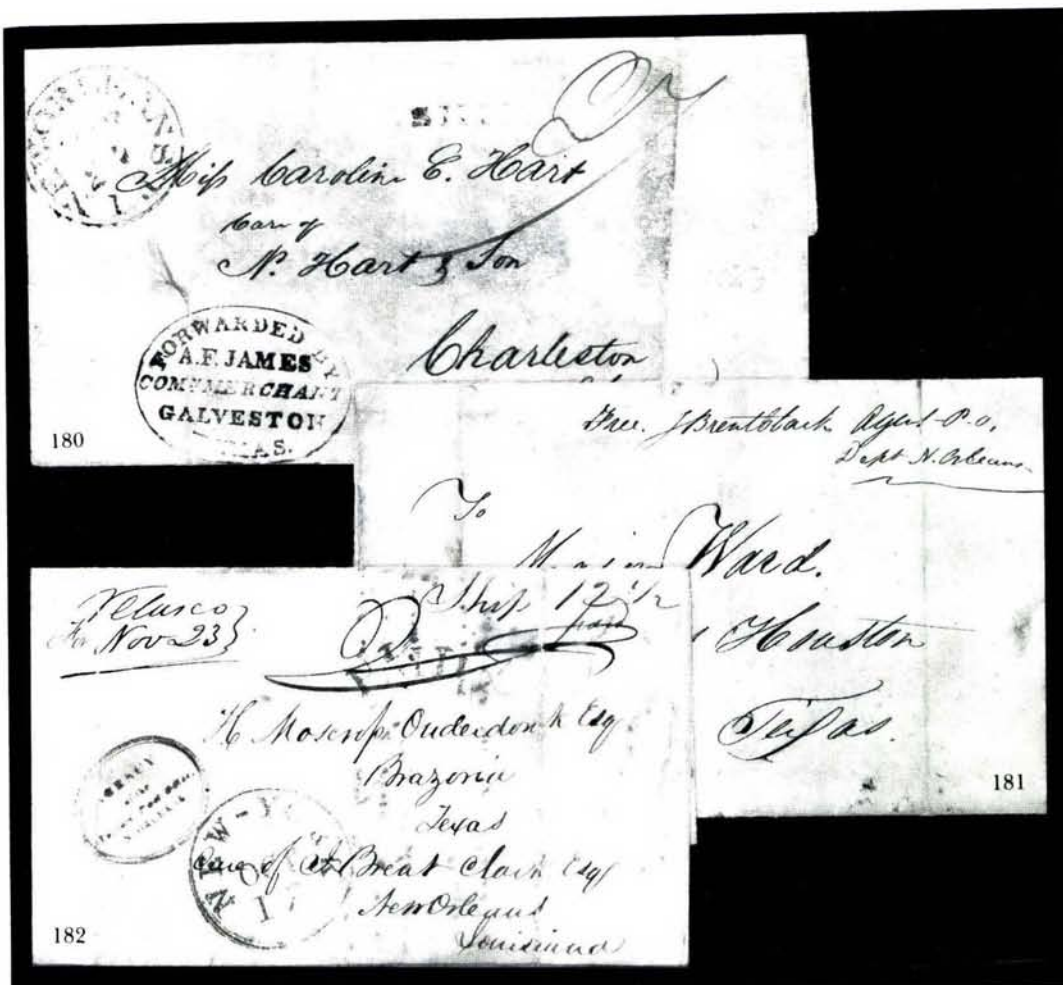 Miss Caroline E. Hart
Care of
N. Hart & Son
Charleston
FORWARDED BY
A.F. JAMES
COM. MERCHANT
GALVESTON
TEXAS.
180
Free. J Brent Clark Agent P.O.
Dept N. Orleans
To
Ward.
Houston
Texas.
181
Velasco
Nov 23
Ship 12 1/2
Paid
H Moscrop Ouderdonk Esq
Brazoria
Texas
Care of Brent Clark Esq
New Orleans
Louisiana
AGENCY
NEW-YORK
OCT
182